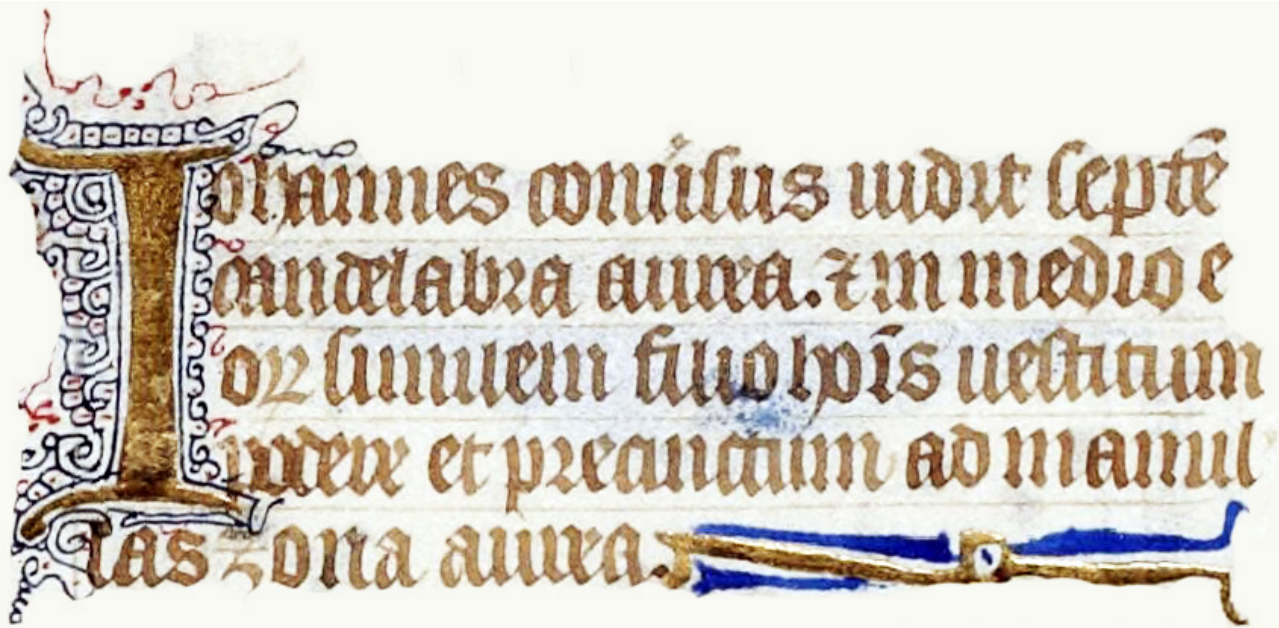 Iohannes conu̾sus uidit septē
candelabra aurea. ⁊ in medio e
oꝝ similem filio hoīs uestitum
podere et precinctum ad mamil
las zona aurea.